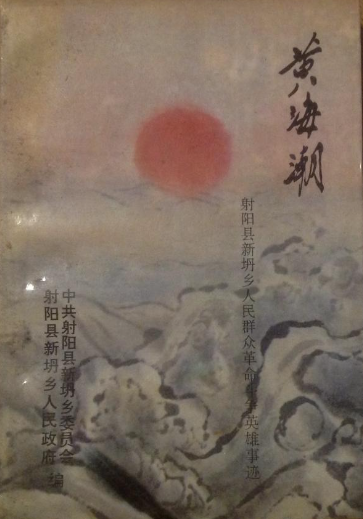 黄海潮
射阳县新坍乡人民群众革命斗争英雄事迹
中共射阳县新坍乡委员会
射阳县新坍乡人民政府 编